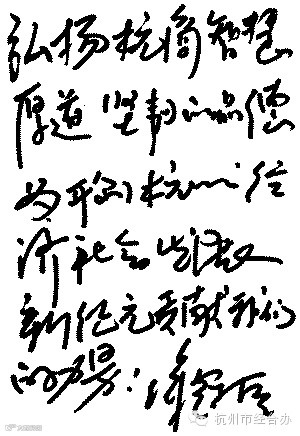 弘扬杭商智慧
厚道 坚韧的品德
为开创杭州经
济社会发展
新纪元贡献我们
的力量！
杭州市经合办